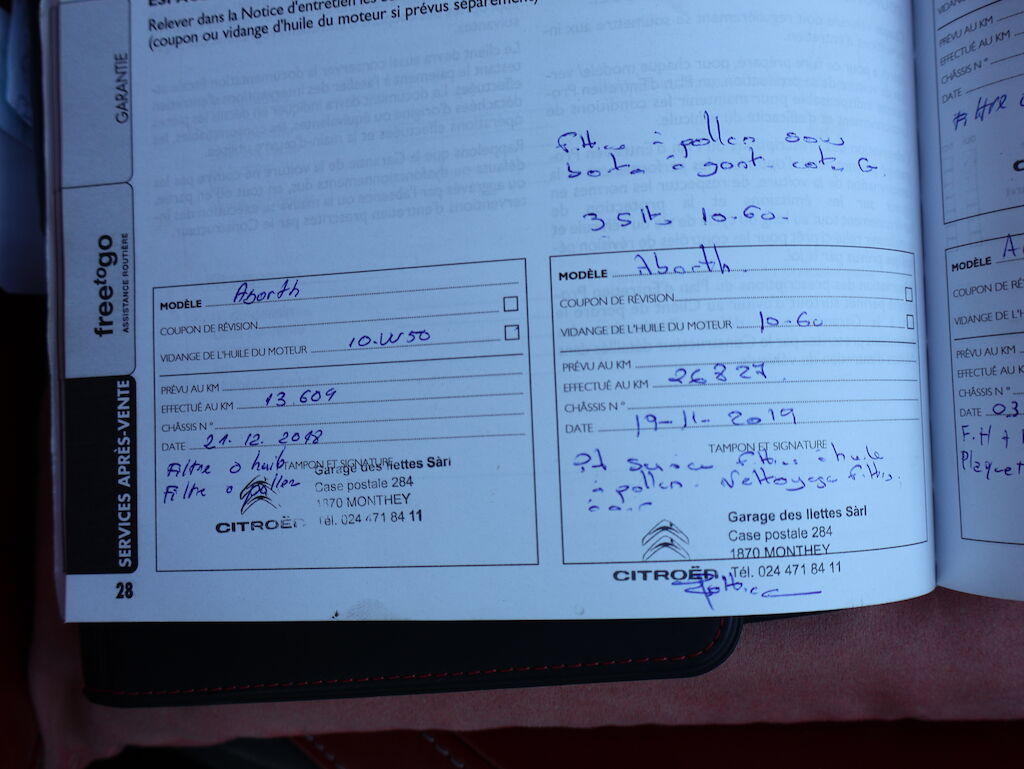 Relever dans la Notice d'entretien les
(coupon ou vidange d'huile du moteur si prévus séparément)
GARANTIE
freetogo
ASSISTANCE ROUTIÈRE
SERVICES APRÈS-VENTE
28
MODÈLE Aborth
COUPON DE RÉVISION
VIDANGE DE L'HUILE DU MOTEUR 10.W50
PRÉVU AU KM
EFFECTUÉ AU KM 13 609
CHÂSSIS N°
DATE 21.12.2018
TAMPON ET SIGNATURE
Filtre a huile
Filtre a pollen
Garage des Ilettes Sàrl
Case postale 284
1870 MONTHEY
Tél. 024 471 84 11
CITROËN
Filtre à pollen sous
boite à gant cote G.
10-60.
MODÈLE Aborth.
COUPON DE RÉVISION
VIDANGE DE L'HUILE DU MOTEUR 10-60
PRÉVU AU KM
EFFECTUÉ AU KM 26827
CHÂSSIS N°
DATE 19-11-2019
TAMPON ET SIGNATURE
à huile
à pollen. Nettoyage filtre
Garage des Ilettes Sàrl
Case postale 284
1870 MONTHEY
Tél. 024 471 84 11
CITROËN
PRÉVU AU KM
EFFECTUÉ AU KM
CHÂSSIS N°
DATE
Filtre
MODÈLE A
COUPON DE RÉ
VIDANGE DE L'H
PRÉVU AU KM
EFFECTUÉ AU K
CHÂSSIS N°
DATE 03.
F.H +
Plaquet